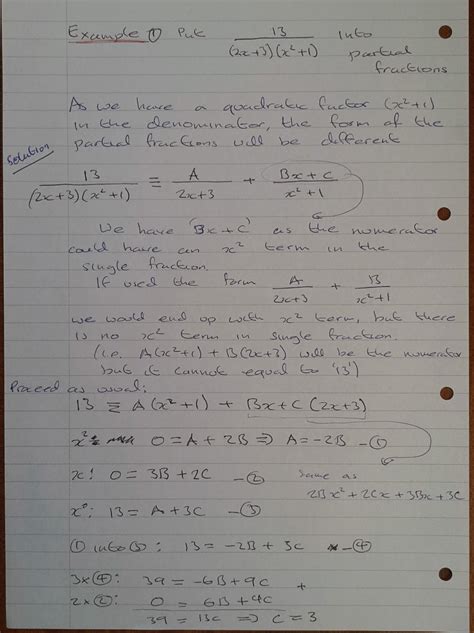 Example ① Put 13 / (2x+3)(x²+1) into partial fractions
As we have a quadratic factor (x²+1)
in the denominator, the form of the
partial fractions will be different
Solution
13 / (2x+3)(x²+1) ≡ A / 2x+3 + Bx+C / x²+1
We have 'Bx+C' as the numerator
could have an x² term in the
single fraction.
If used the form A / 2x+3 + B / x²+1
we would end up with x² term, but there
is no x² term in single fraction.
(i.e. A(x²+1) + B(2x+3) will be the numerator
but it cannot equal to '13')
Proceed as usual:
13 ≡ A(x²+1) + Bx+C(2x+3)
x²: 0 = A + 2B ⇒ A = -2B -①
x: 0 = 3B + 2C -②
same as
2Bx² + 2Cx + 3Bx + 3C
x⁰: 13 = A + 3C -③
① into ③: 13 = -2B + 3C -④
3x④: 39 = -6B + 9C +
2x②: 0 = 6B + 4C
39 = 13C ⇒ C = 3